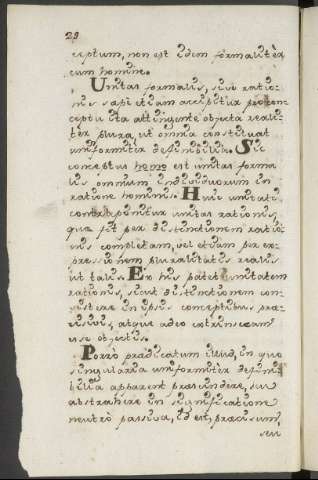 29
ceptum, non est idem formalitèr
cum homine.
Unitas formalis, sive ratio-
nis sæpè etiam accipitur pro con-
ceptu ita attingente objecta reali-
tèr plura, ut omnia constituat
uniformitèr definibilia. Sic
conceptus homo est unitas forma-
lis omnium individuorum in
ratione hominis. Huic unitati
contraponitur unitas rationis,
quæ fit per distinctionem ratio-
nis completam, vel etiam per ex-
pressionem pluralitatis realis
ut talis. Ex his patet unitatem
rationis, sicut distinctionem con-
sistere in ipsis conceptibus præ-
cisivis, atque adeo extrinsecam
esse objectis.
Porrò prædicatum illud, in quo
singularia uniformitèr defini-
bilia apparent præscindere, seu
abstrahere in significatione
neutro passiva, id est, præcisum,
seu